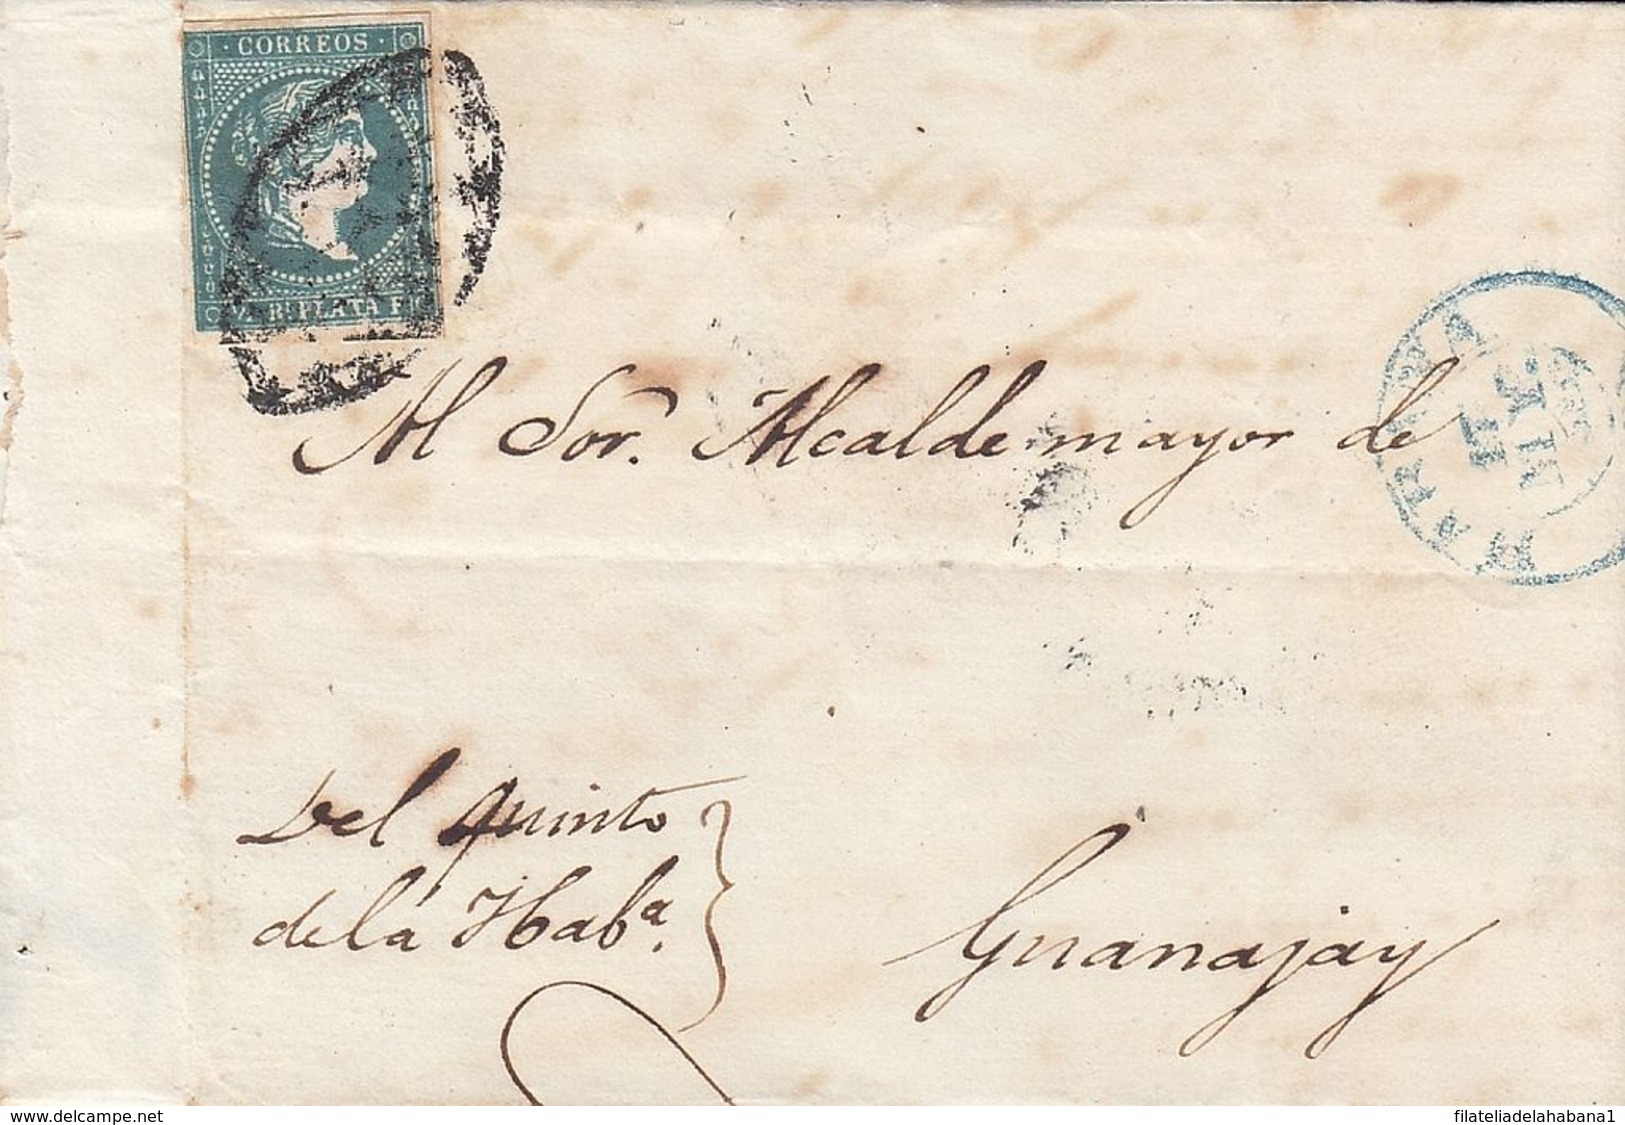 · CORREOS ·
½ Rl PLATA F
Al Sor. Alcalde mayor de
HABANA
Del quinto
de la Haba.
Guanajay
www.delcampe.net
filateliadelahabana1